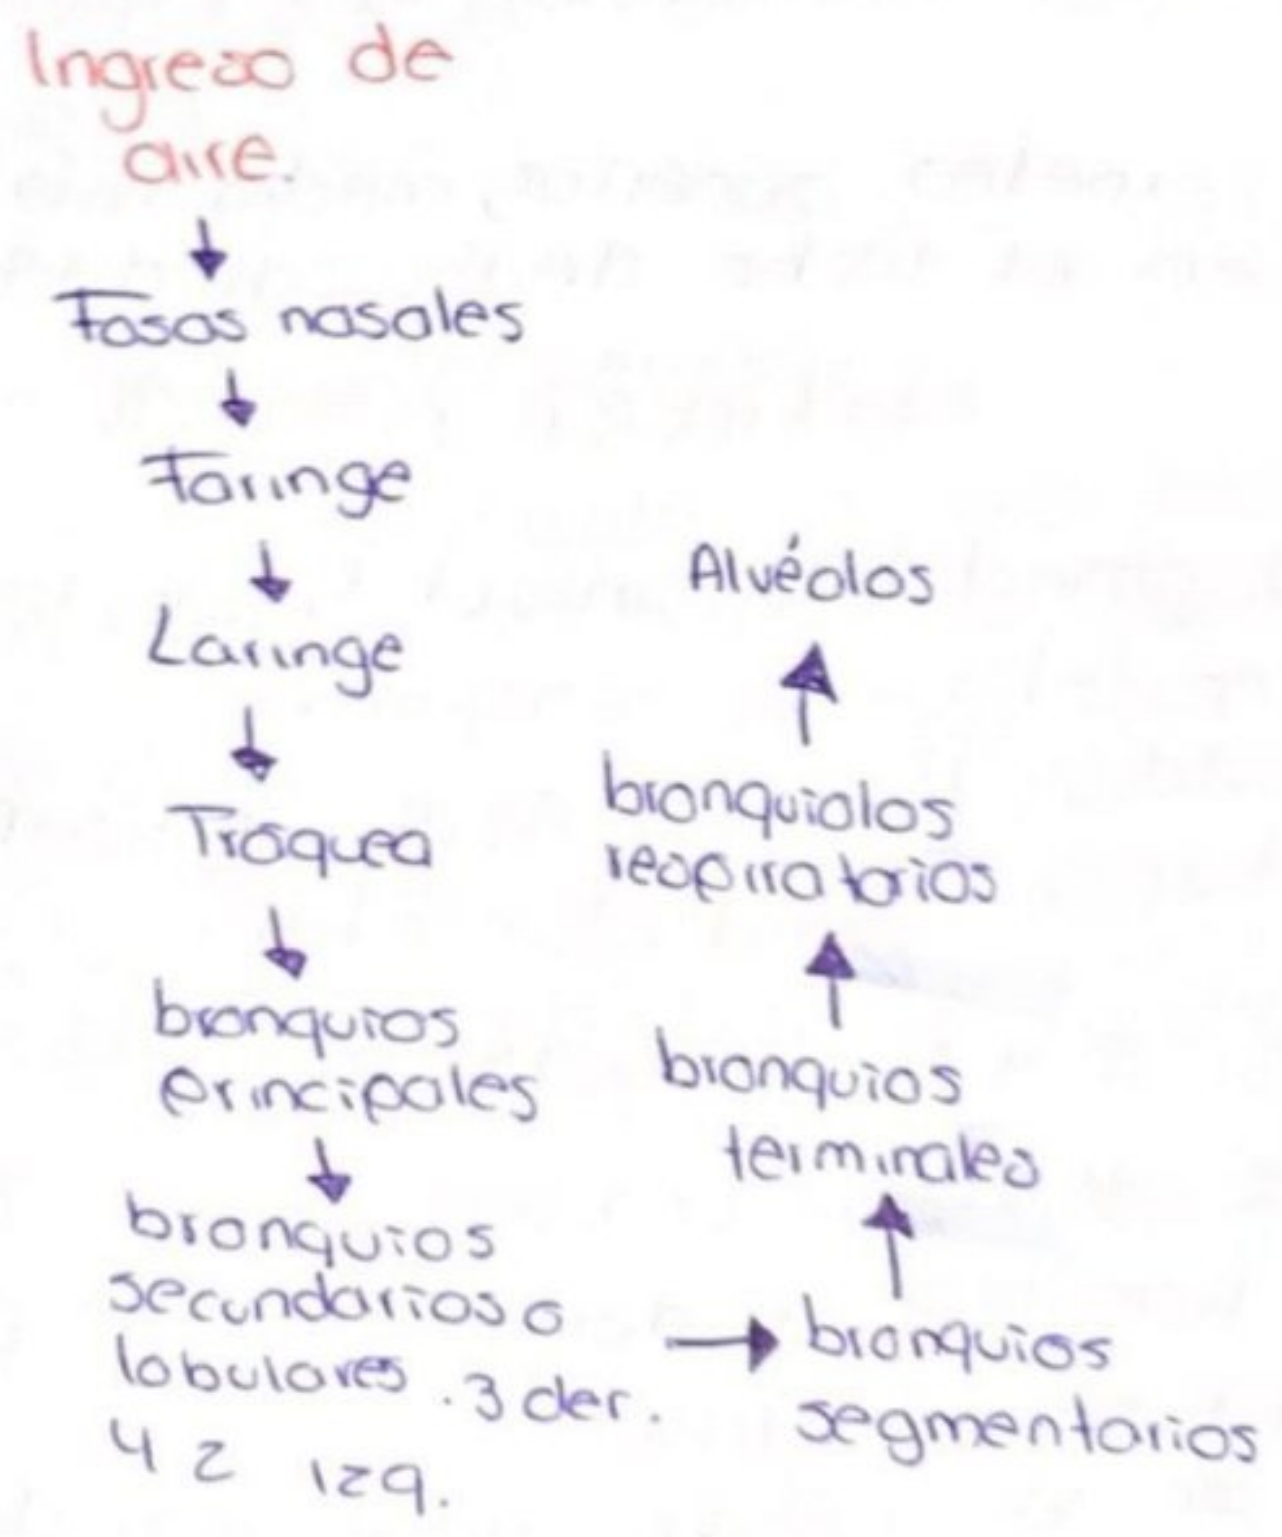 Ingreso de
aire.
Fosas nasales
Faringe
Laringe
Tráquea
bronquios
principales
bronquios
secundarios o
lobulares . 3 der.
y 2 izq.
bronquios
segmentarios
bronquios
terminales
bronquiolos
respiratorios
Alvéolos